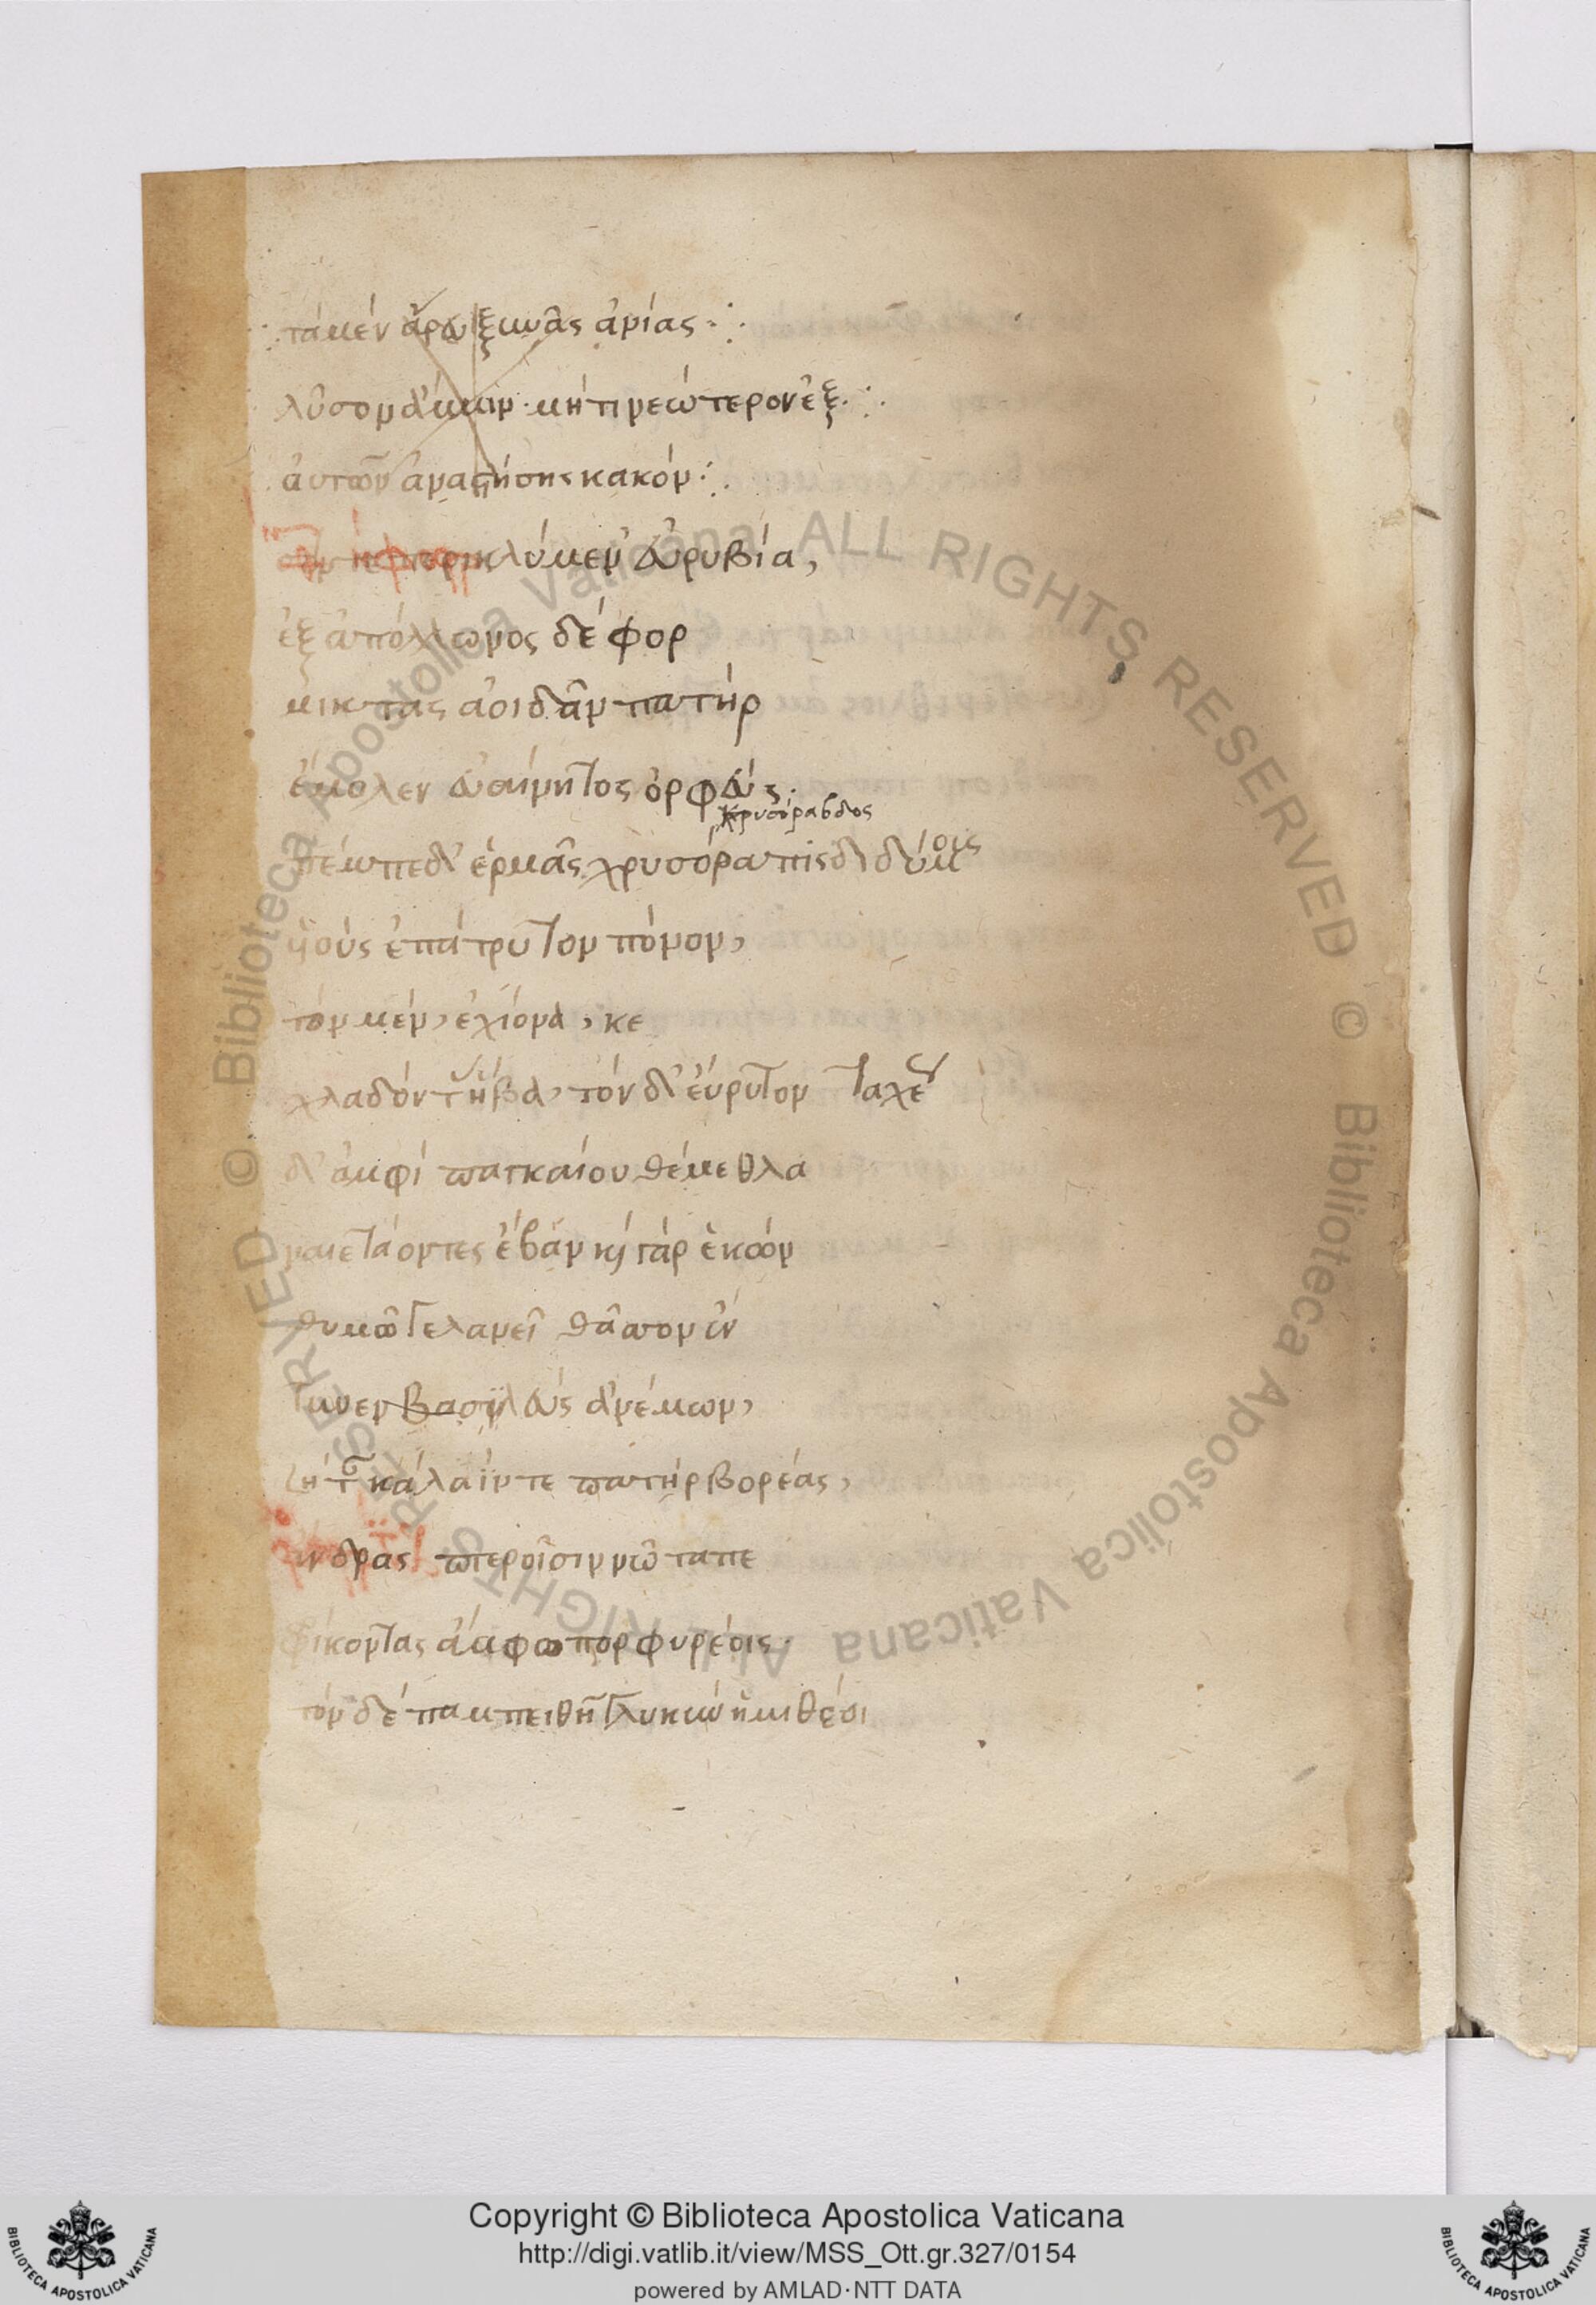 τὰ μέν ἄνευ ξυνᾶς ἀνίας
λῦσον ἄμμιν· μή τι νεώτερον ἐξ
ἀυτῶν ἀναστήσης κακόν
κλύμεν' ἐυρυβία,
ἐξ ἀπόλλωνος δέ φορ
μικτὰς ἀοιδᾶν πατὴρ
ἔμολεν ἐυαίνητος ὀρφεύς·
χρυσόραβδος
πέμπε δ' ἑρμᾶς χρυσόραπις διδύμοις
ϋἱούς ἐπάτρυτον πόνον,
τὸν μέν, ἐχίονα, κε
χλαδόντας ἥβα, τὸν δ' ἔυρυτον ταχὺ
δ' ἀμφί παγκαίου θέμεθλα
ναιετάοντες ἔβαν κὶ γὰρ ἑκὼν
θυμῶ γελανεῖ θᾶσσον ἐν
τυνεν βασιλεύς ἀνέμων,
ζήταν κάλαΐν τε πατὴρ βορέας,
ἄνδρας πτεροῖσιν νῶτα πε
φρίκοντας ἄμφω πορφυρέοις·
τὸν δέ παμπειθῆ γλυκὺν ἡμιθέοι
Copyright © Biblioteca Apostolica Vaticana
http://digi.vatlib.it/view/MSS_Ott.gr.327/0154
powered by AMLAD·NTT DATA
BIBLIOTECA APOSTOLICA VATICANA
BIBLIOTECA APOSTOLICA VATICANA
© Biblioteca Apostolica Vaticana ALL RIGHTS RESERVED © Biblioteca Apostolica Vaticana ALL RIGHTS RESERVED